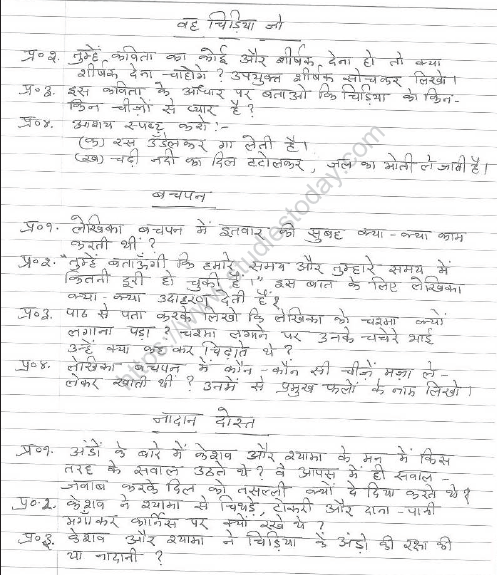 वह चिड़िया जो
प्र०२. तुम्हें कविता का कोई और शीर्षक देना हो तो क्या
शीर्षक देना चाहोगे? उपयुक्त शीर्षक सोचकर लिखो।
प्र०३. इस कविता के आधार पर बताओ कि चिड़िया को किन-
किन चीज़ों से प्यार है?
प्र०४. आशय स्पष्ट करो:-
(क) रस उँडेलकर गा लेती है।
(ख) चढ़ी नदी का दिल टटोलकर, जल का मोती ले जाती है।
बचपन
प्र०१. लेखिका बचपन में इतवार की सुबह क्या-क्या काम
करती थीं?
प्र०२. "तुम्हें बताऊँगी कि हमारे समय और तुम्हारे समय में
कितनी दूरी हो चुकी है।" इस बात के लिए लेखिका
क्या क्या उदाहरण देती हैं?
प्र०३. पाठ से पता करके लिखो कि लेखिका को चश्मा क्यों
लगाना पड़ा? चश्मा लगाने पर उनके चचेरे भाई
उन्हें क्या कह कर चिढ़ाते थे?
प्र०४. लेखिका बचपन में कौन-कौन सी चीज़ें मज़ा ले-
लेकर खाती थीं? उनमें से प्रमुख फलों के नाम लिखो।
नादान दोस्त
प्र०१. अंडों के बारे में केशव और श्यामा के मन में किस
तरह के सवाल उठते थे? वे आपस में ही सवाल-
जवाब करके दिल को तसल्ली क्यों दे दिया करते थे?
प्र०२. केशव ने श्यामा से चिथड़े, टोकरी और दाना-पानी
मँगाकर कार्निस पर क्यों रखे थे?
प्र०३. केशव और श्यामा ने चिड़िया के अंडों की रक्षा की
या नादानी?
https://www.studiestoday.com